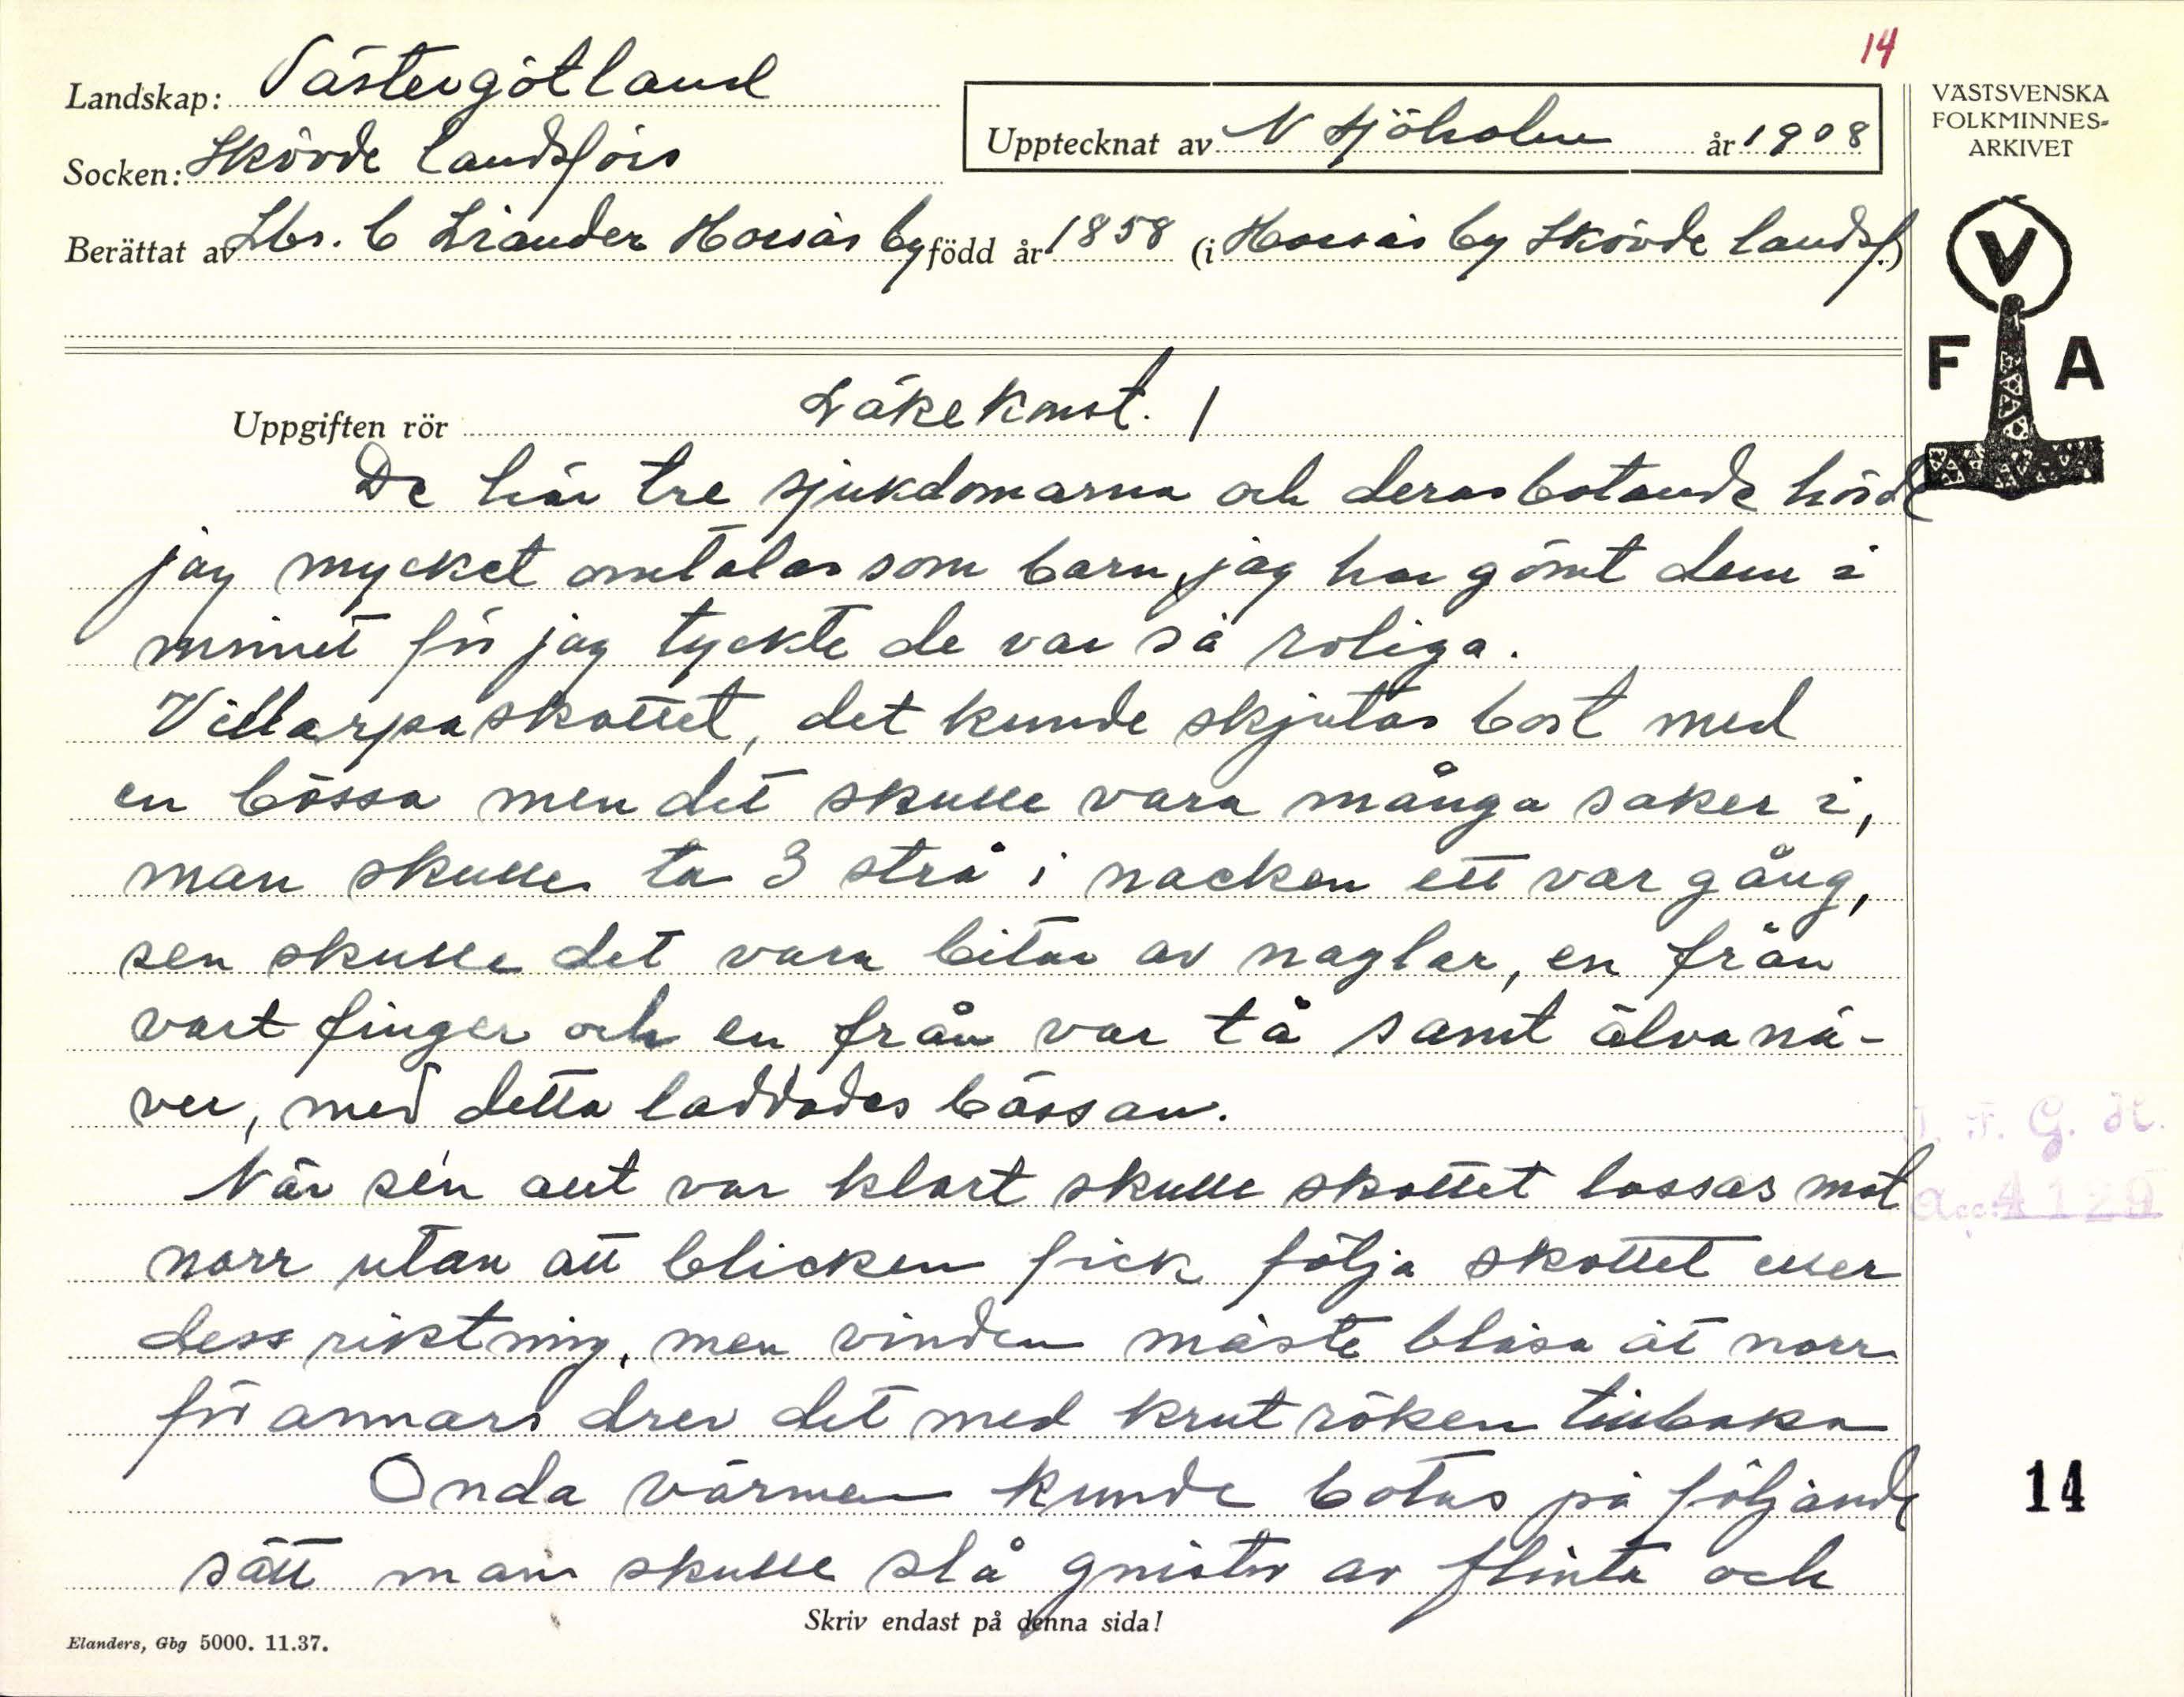 14
Landskap: Västergötland
Upptecknat av N Sjöholm år 1908
Socken: Skövde landsförs
Berättat av Lbr. C Liander Horsås by född år 1858 (i Horsås by Skövde landsf.)
VÄSTSVENSKA
FOLKMINNES-
ARKIVET
V
F A
Uppgiften rör Läkekonst. 1
De här tre sjukdomarna och deras botande hörde
jag mycket omtalas som barn, jag har gömt dem i
minnet för jag tyckte de var så roliga.
Villarpaskottet, det kunde skjutas bort med
en bössa men det skulle vara många saker i,
man skulle ta 3 strå i nacken ett var gång,
sen skulle det vara bitar av naglar, en från
vart finger och en från var tå samt älvanä-
ver, med detta laddades bössan.
När sén allt var klart skulle skottet lossas mot
norr utan att blicken fick följa skottet eller
dess riktning, men vinden måste blåsa åt norr
för annars drev det med krutröken tillbaka
Onda värmen kunde botas på följande
sätt man skulle slå gnistor av flinta och
I. F. G. H.
Acc. 4129
14
Skriv endast på denna sida!
Elanders, Gbg 5000. 11.37.